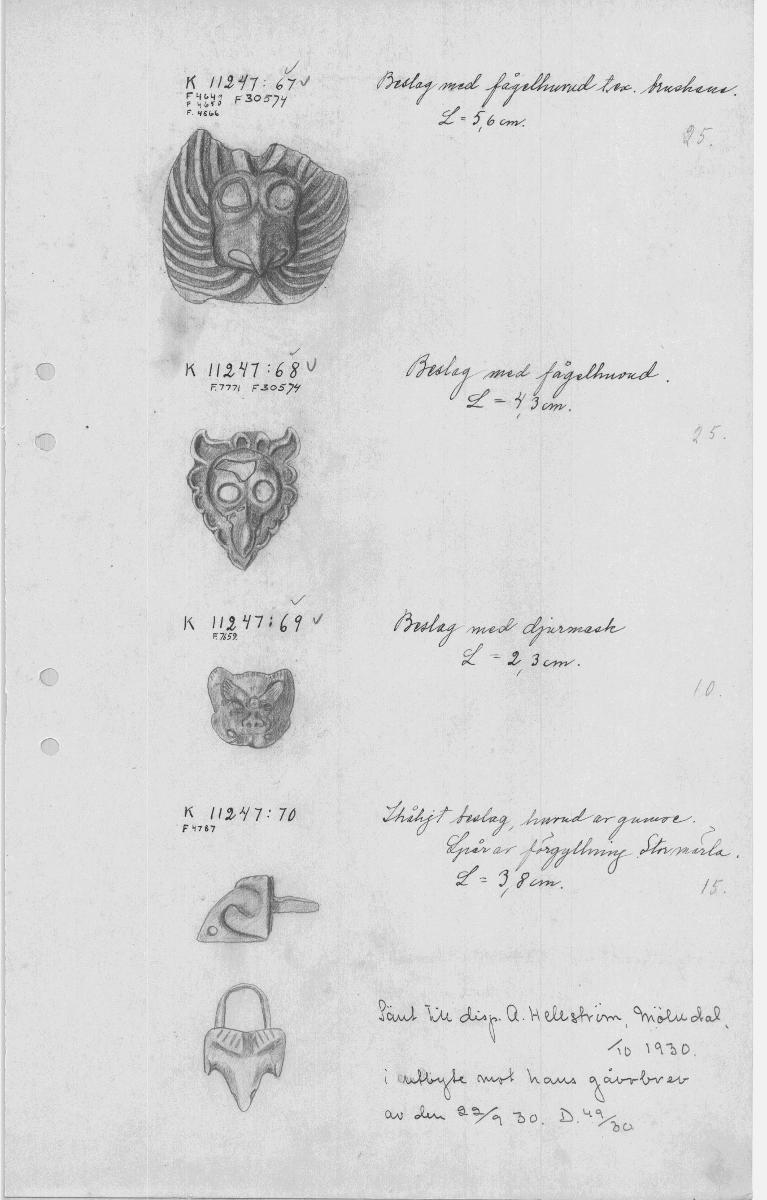 K 11247:67
F 4649 F 30574
F 4650
F. 4666
Beslag med fågelhuvud t.ex. brushane.
L = 5,6 cm.
25.
K 11247:68
F.7771 F 30574
Beslag med fågelhuvud.
L = 4,3 cm.
25.
K 11247:69
F.7659.
Beslag med djurmask
L = 2,3 cm.
10.
K 11247:70
F 4787
Ihåligt beslag, huvud av gumse.
Spår av förgyllning. Stor märla.
L = 3,8 cm.
15.
Sänt till disp. A. Hellström, Mölndal,
/10 1930.
i utbyte mot hans gåvobrev
av den 22/9 30. D. 49/30